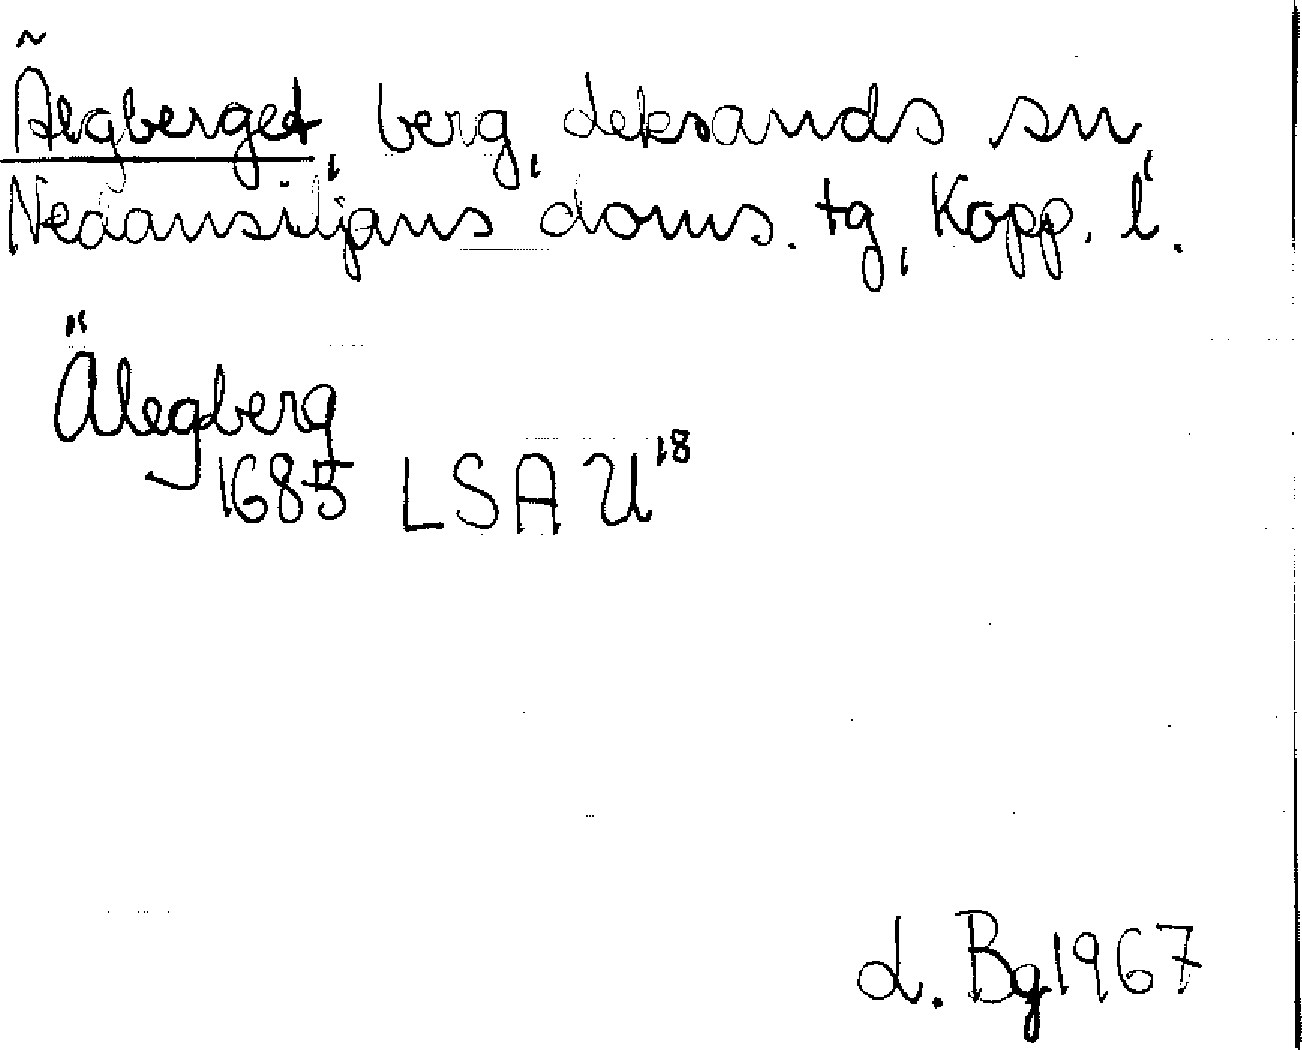 Älgberget, berg, Leksands sn,
Nedansiljans doms. tg, Kopp. l.
Älegberg
1685 LSA U18
L. Bg 1967